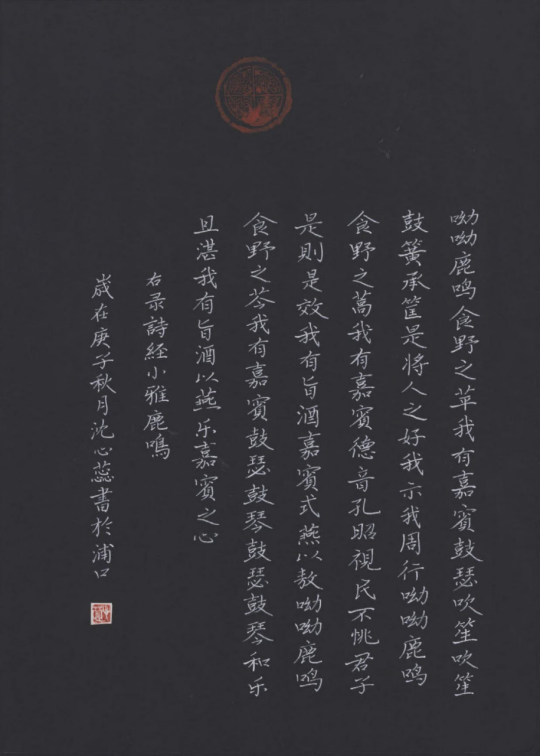 呦呦鹿鸣食野之苹我有嘉賓鼓瑟吹笙吹笙
鼓簧承筐是将人之好我示我周行呦呦鹿鸣
食野之蒿我有嘉賓德音孔昭視民不恌君子
是則是效我有旨酒嘉賓式燕以敖呦呦鹿鸣
食野之芩我有嘉賓鼓瑟鼓琴鼓瑟鼓琴和乐
且湛我有旨酒以燕乐嘉賓之心
右录詩経小雅鹿鳴
嵗在庚子秋月沈心蕊書於浦口